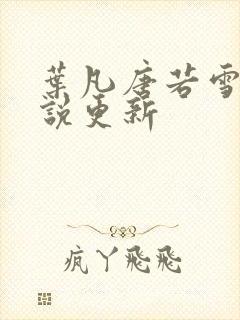 葉凡唐若雪
說更新
疯丫飛飛